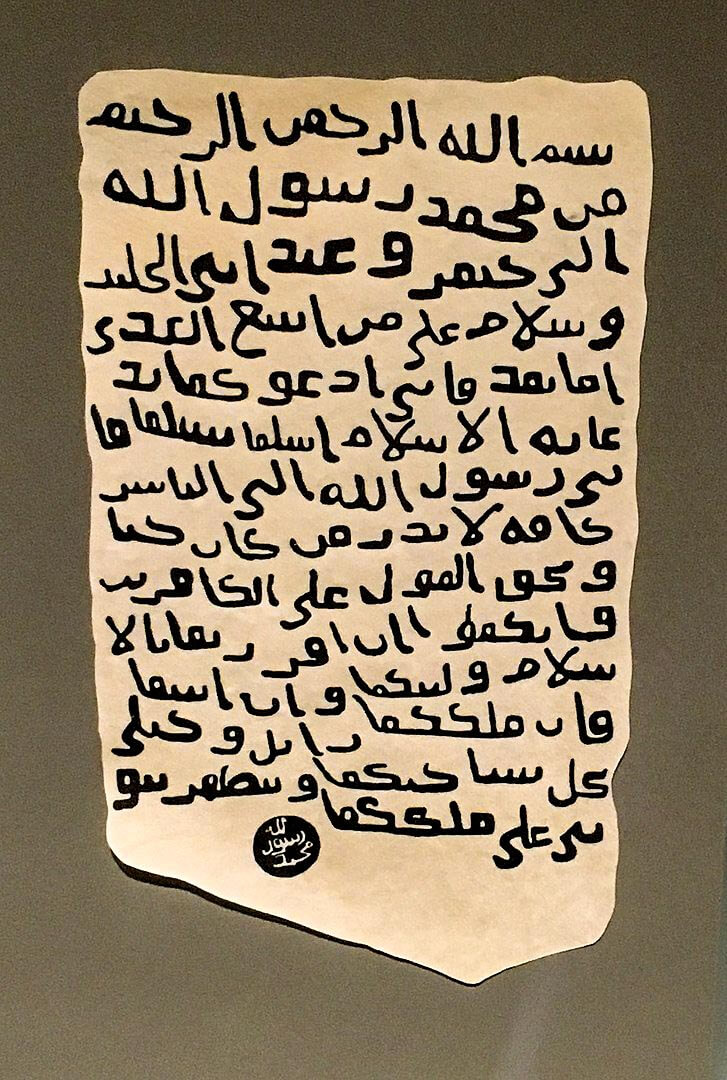 بسم الله الرحمن الرحيم
من محمد رسول الله
الى جيفر و عبد ابني الجلند
وسلام على من اتبع الهدى
اما بعد فاني ادعوكما بد
عاية الاسلام اسلما تسلما فا
ني رسول الله الى الناس
كافة لانذر من كان حيا
ويحق القول على الكافرين
فانكما ان اقررتما بالا
سلام وليتكما وان ابيتما
فان ملككما زايل وخيلي
تحل بساحتكما وتظهر نبو
تي على ملككما
الله
رسول
محمد